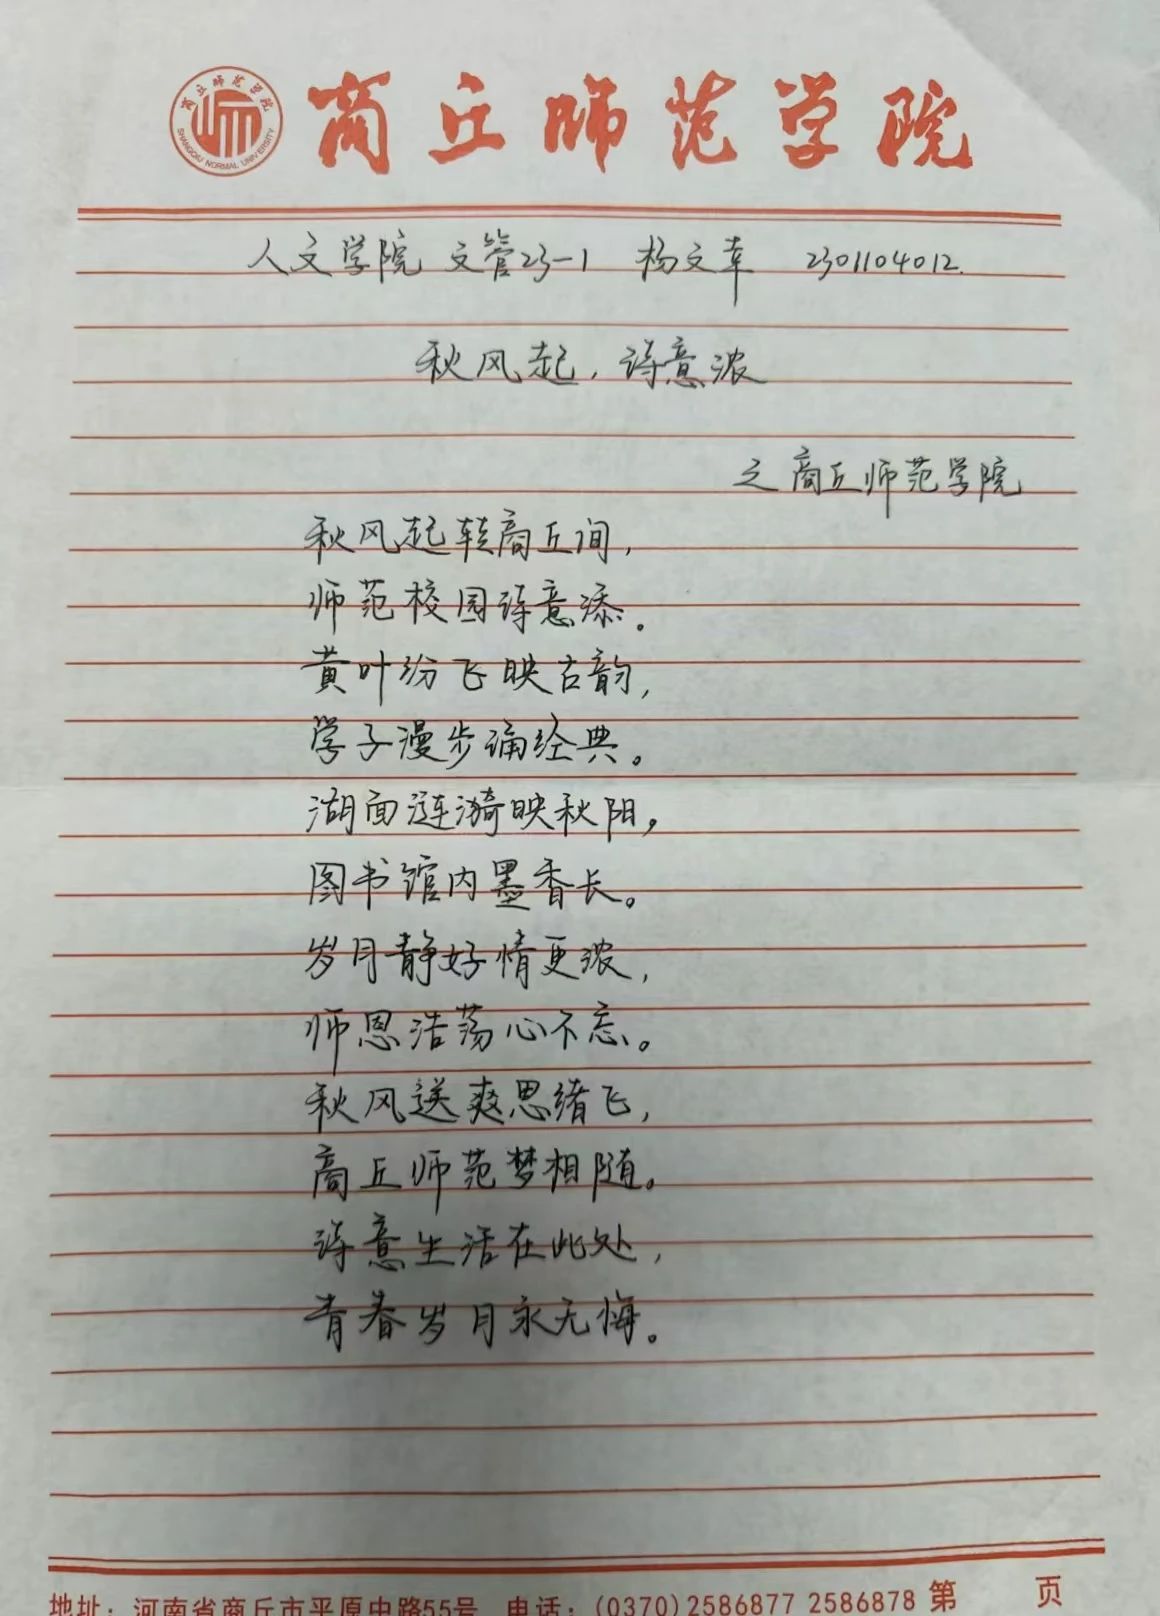 商丘师范学院
SHANGQIU NORMAL UNIVERSITY
商丘师范学院
人文学院 文管23-1 杨文幸 2301104012.
秋风起，诗意浓
之商丘师范学院
秋风起转商丘间，
师范校园诗意添。
黄叶纷飞映古韵，
学子漫步诵经典。
湖面涟漪映秋阳，
图书馆内墨香长。
岁月静好情更浓，
师恩浩荡心不忘。
秋风送爽思绪飞，
商丘师范梦相随。
诗意生活在此处，
青春岁月永无悔。
地址：河南省商丘市平原中路55号 电话：(0370) 2586877 2586878 第 页